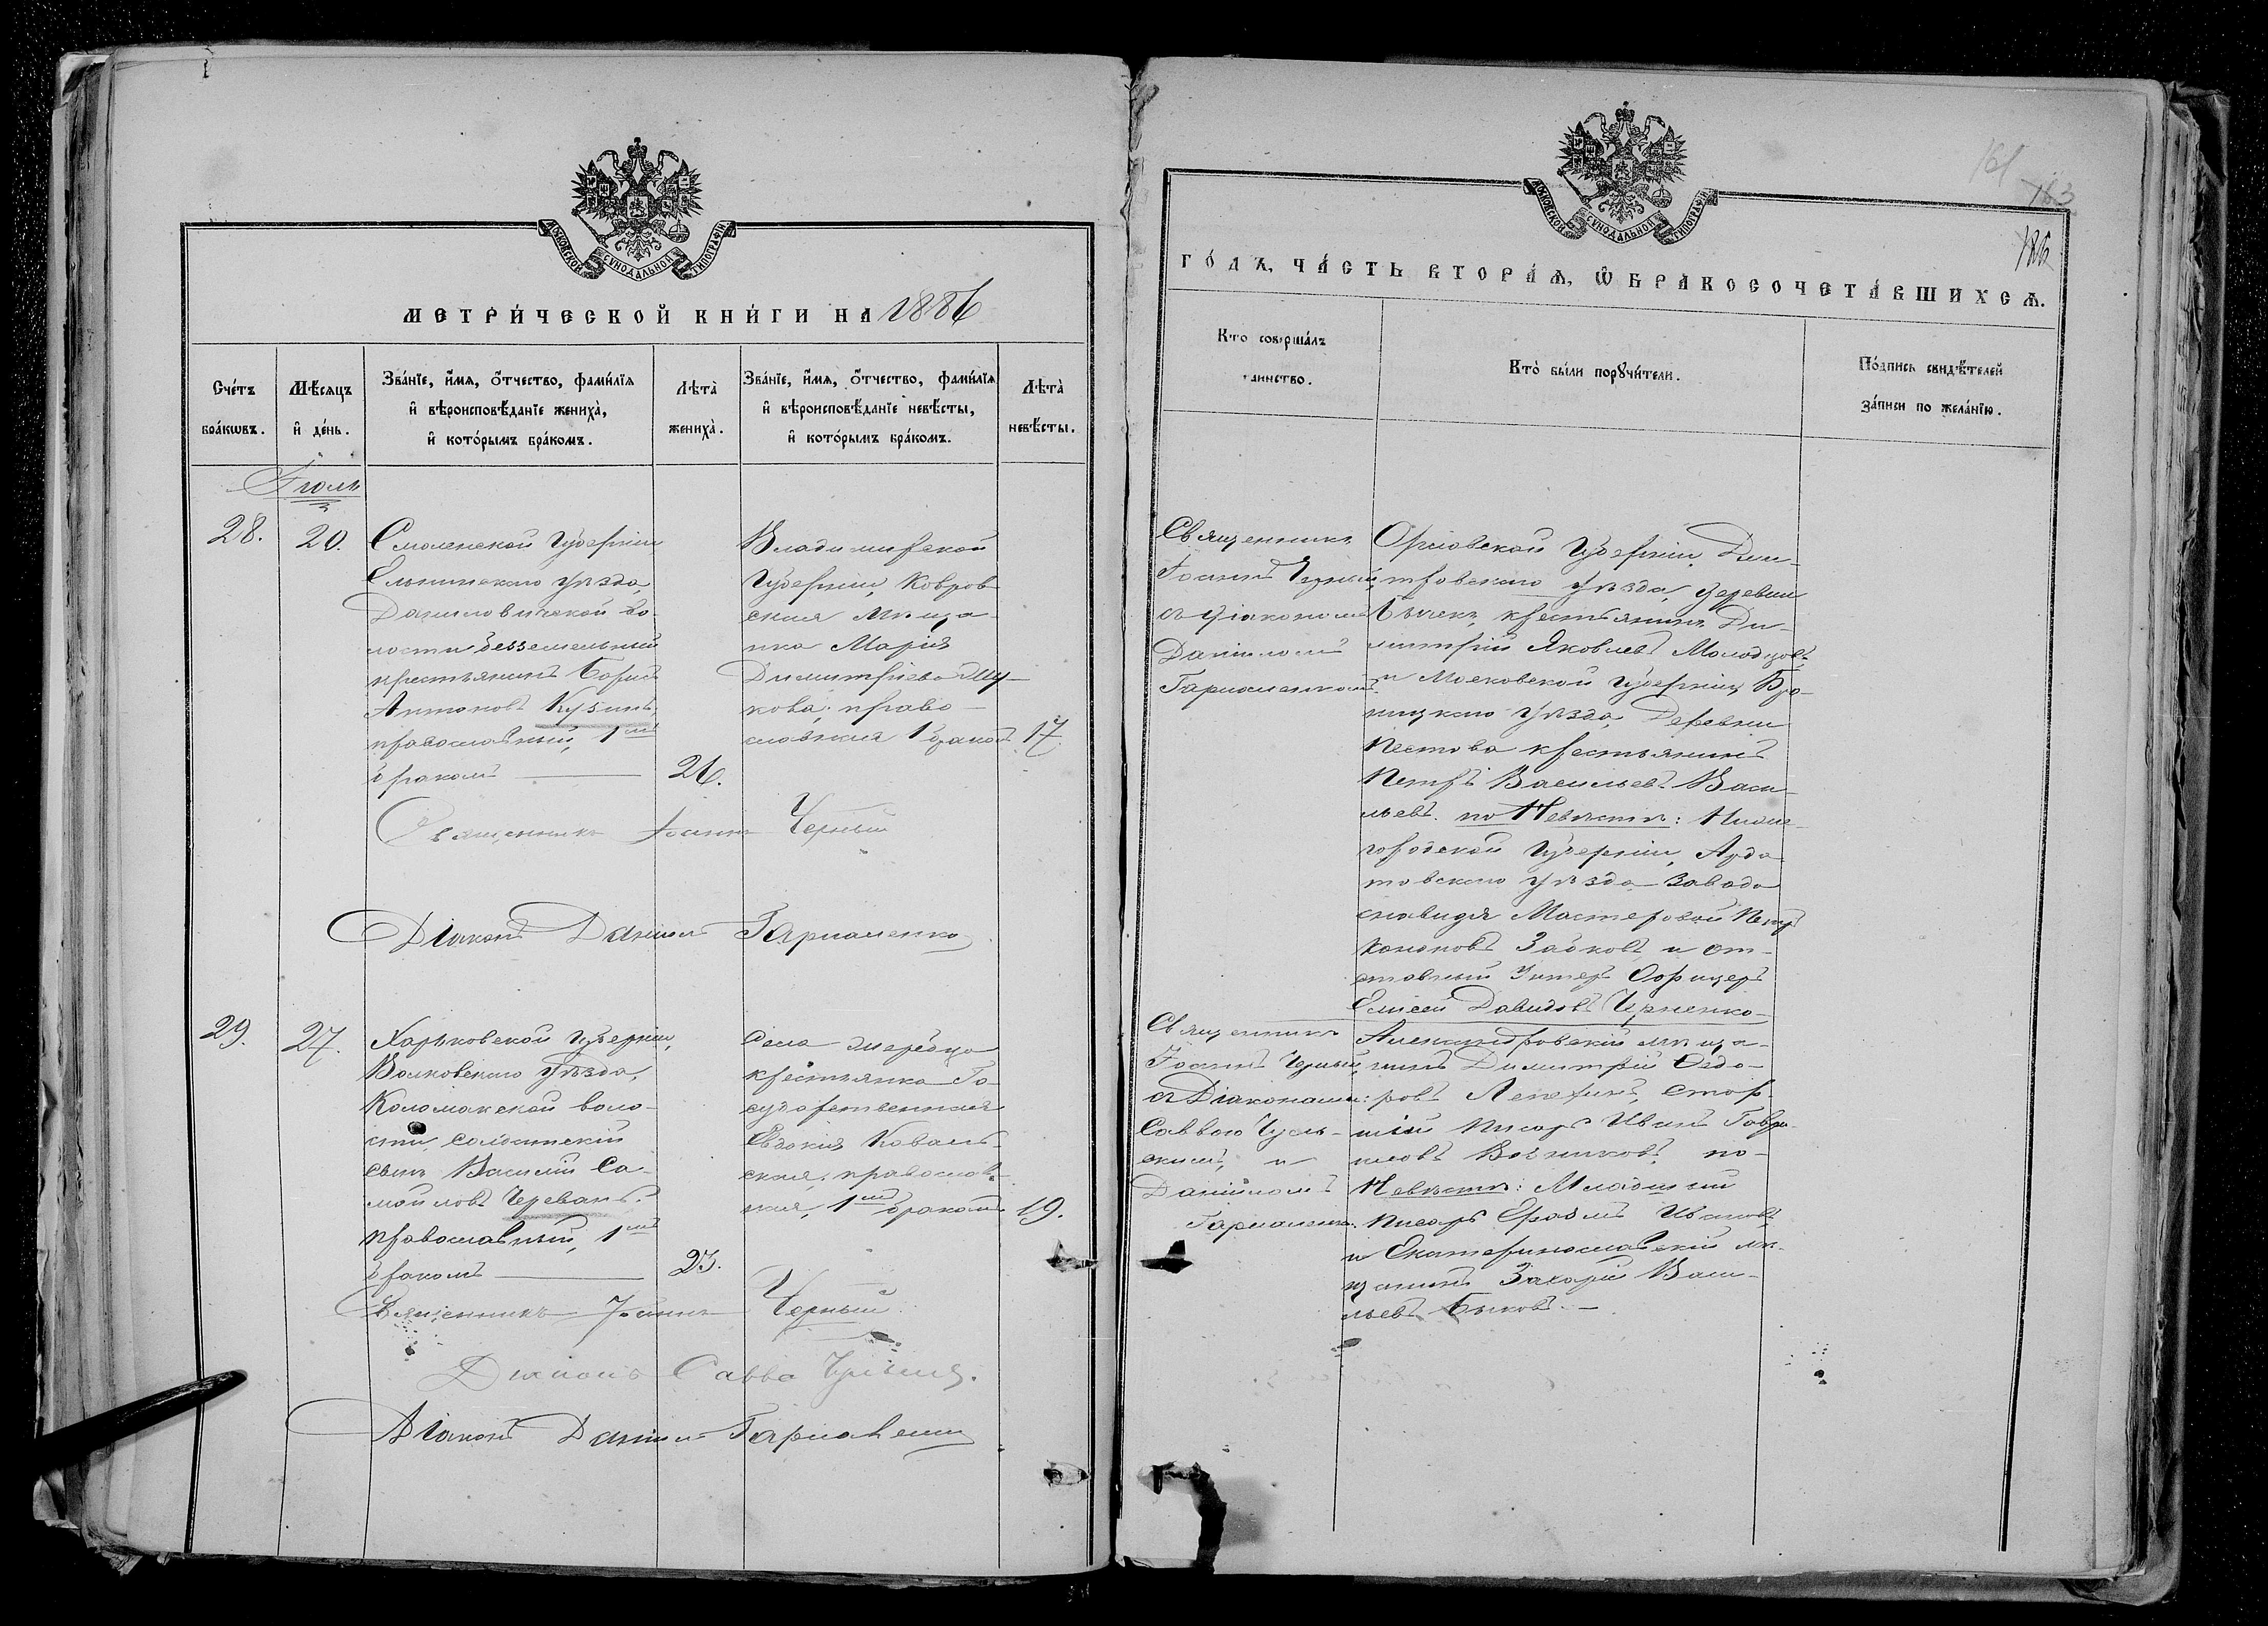 МОСКОВСКОЙ СѴНОДАЛЬНОЙ ТИПОГРАФІИ
МЕТРИ́ЧЕСКОЙ КНИ́ГИ НА 1886
Сче́тъ бра́кѡвъ.
Мѣ́сяцъ и҆ де́нь.
Зва́нїе, и҆́мѧ, ѻ҆́тчество, фами́лїѧ
и҆ вѣроисповѣ́данїе жениха̀,
и҆ кото́рымъ бра́комъ.
Лѣта̀ жениха̀.
Зва́нїе, и҆́мѧ, ѻ҆́тчество, фами́лїѧ
и҆ вѣроисповѣ́данїе невѣ́сты,
и҆ кото́рымъ бра́комъ.
Лѣта̀ невѣ́сты.
Іюль
28.
20.
Смоленской Губерніи
Ельнинскаго Уѣзда,
Даниловичской во-
лости безземельный
крестьянинъ Борисъ
Антоновъ Кузинъ,
православный, 1мъ
бракомъ
26.
Владимирской
Губерніи, Ковров-
ская мѣща-
нка Марія
Димитріева
кова, право-
славная 1 бракомъ
17.
Священникъ Іоаннъ Черный
Діаконъ Даніилъ Гармаленко
29.
27.
Харьковской Губерніи,
Волковскаго Уѣзда,
Коломакской воло-
сти, солдатскій
сынъ Василій Са-
мойловъ Череванъ.
православный, 1мъ
бракомъ
23.
Села
крестьянка Го-
сударственная
Евдокія Коваль-
ская, православ-
ная, 1мъ бракомъ
19.
Священникъ Іоаннъ Черный
Діаконъ Савва
Діаконъ Даніилъ Гармаленко
МОСКОВСКОЙ СѴНОДАЛЬНОЙ ТИПОГРАФІИ
161
163
ГО́ДЪ, ЧА́СТЬ ВТОРА́Ѧ, Ѽ БРАКОСОЧЕТА́ВШИХСѦ.
Кто̀ соверша́лъ
таинство.
Кто̀ бы́ли порꙋчи́тели.
По́дпись свидѣ́телей
за́писи по жела́нїю.
Священникъ
Іоаннъ Черный,
съ діакономъ
Даніиломъ
Гармаленкомъ.
Орловской Губерніи, Дми-
тровскаго Уѣзда, деревни
крестьянинъ Ди-
митрій Яковлевъ Молодцовъ,
и Московской Губерніи, Бро-
ницкаго Уѣзда, Деревни
Пестова крестьянинъ
Петръ Васильевъ Васи-
льевъ. по Невѣстѣ: Ниже-
городской Губерніи, Арда-
товскаго Уѣзда Завода
Мастеровой Петръ
Кононовъ Зайковъ и от-
ставный Унтеръ Офицеръ
Елисей Давидовъ Черненко
Священникъ
Іоаннъ Черный,
съ Діаконами:
Саввою
скимъ, и
Даніиломъ
Гармаленк.
Александровскій мѣща-
нинъ Димитрій Ѳедо-
ровъ Лепехинъ, стар-
шій писарь Иванъ Гаври-
ловъ по-
Невѣстѣ: Младшій
писарь Ивановъ
и Екатеринославскій мѣ-
щанинъ Захарій Васи-
льевъ Быковъ.